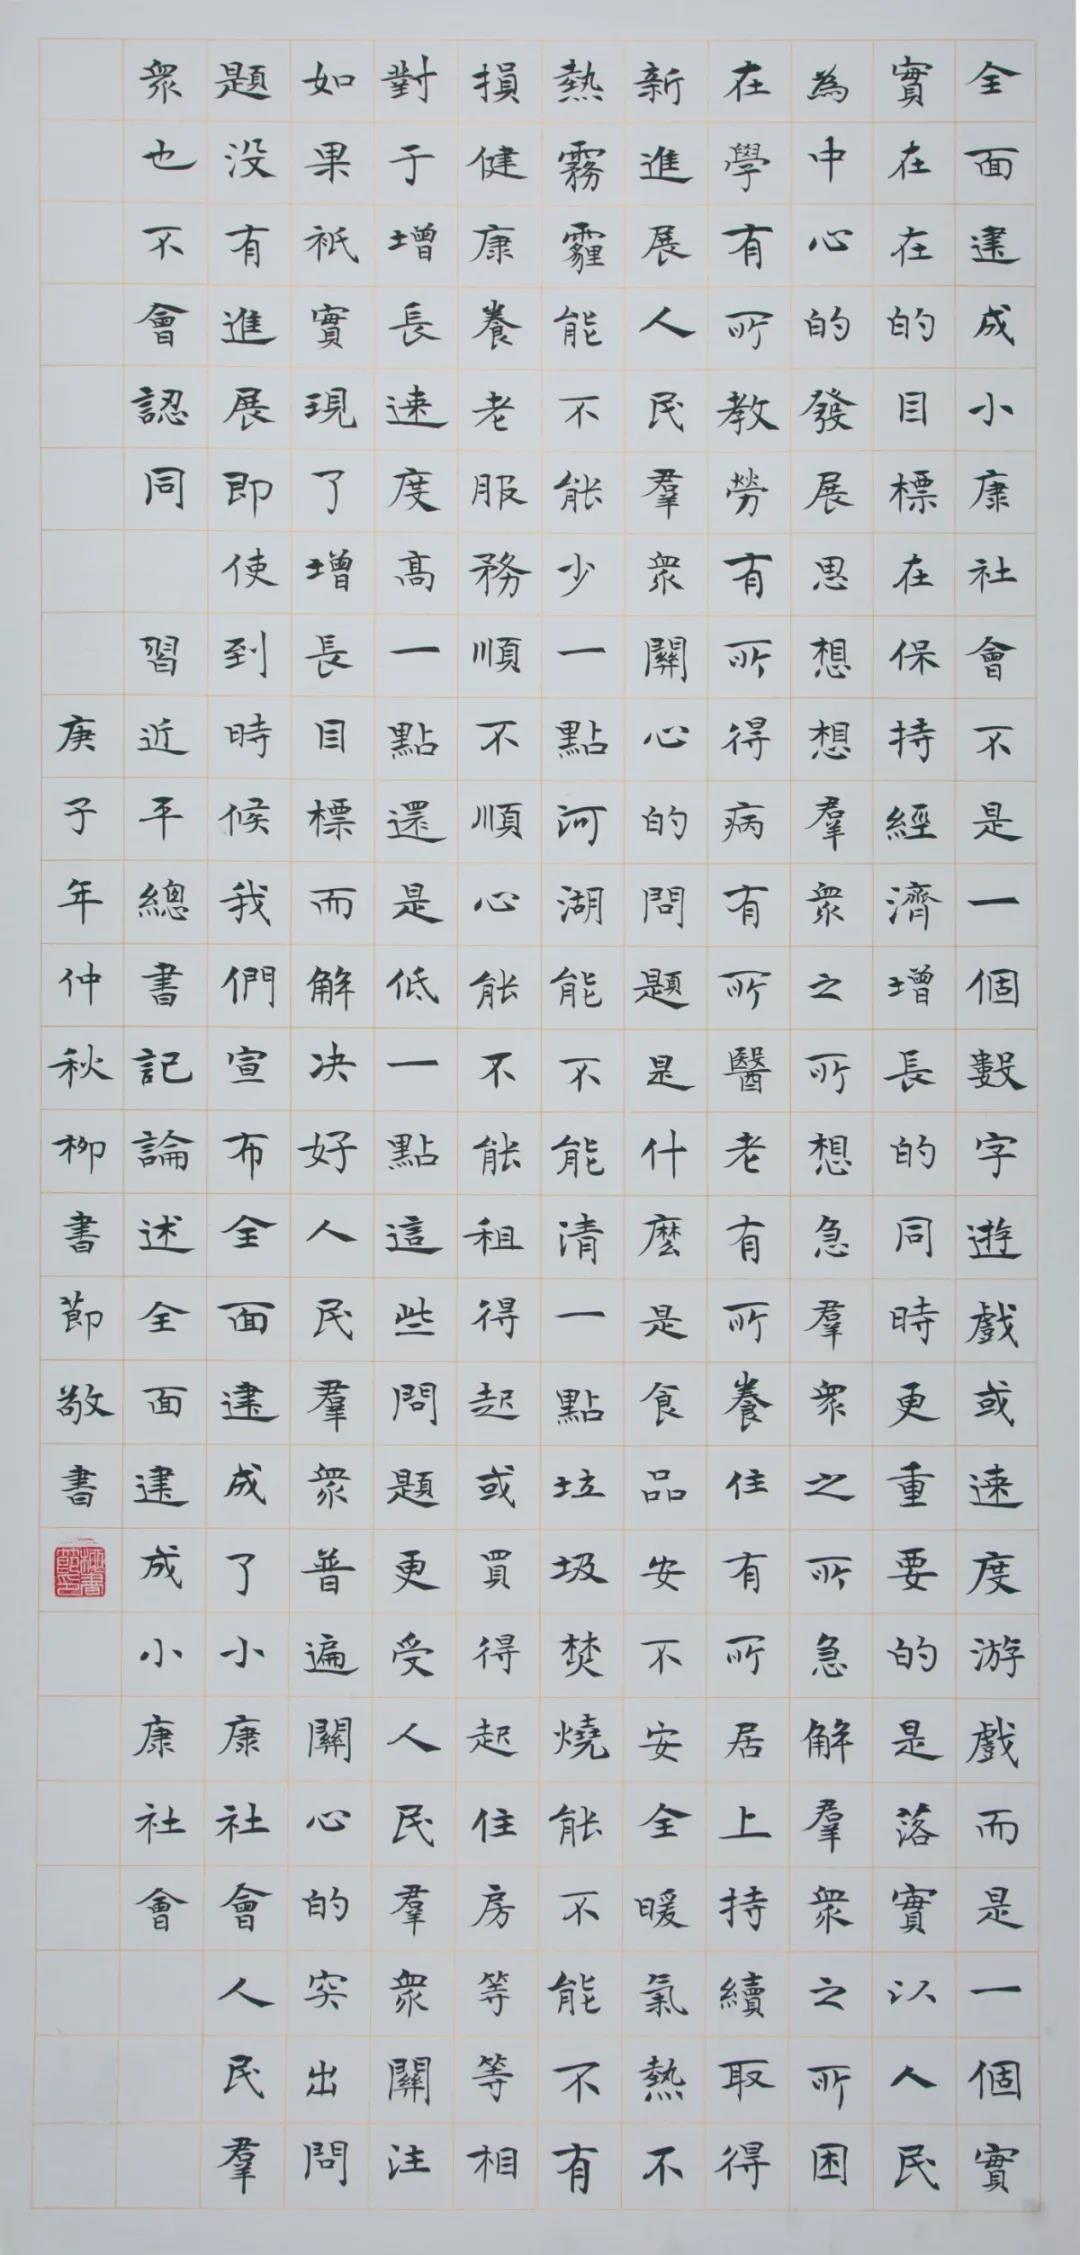 全面建成小康社會不是一個數字遊戲或速度游戲而是一個實
實在在的目標在保持經濟增長的同時更重要的是落實以人民
為中心的發展思想想羣衆之所想急羣衆之所急解羣衆之所困
在學有所教勞有所得病有所醫老有所養住有所居上持續取得
新進展人民羣衆關心的問題是什麼是食品安不安全暖氣熱不
熱霧霾能不能少一點河湖能不能清一點垃圾焚燒能不能不有
損健康養老服務順不順心能不能租得起或買得起住房等等相
對于增長速度高一點還是低一點這些問題更受人民羣衆關注
如果祇實現了增長目標而解决好人民羣衆普遍關心的突出問
題没有進展即使到時候我們宣布全面建成了小康社會人民羣
衆也不會認同 習近平總書記論述全面建成小康社會
庚子年仲秋柳書節敬書